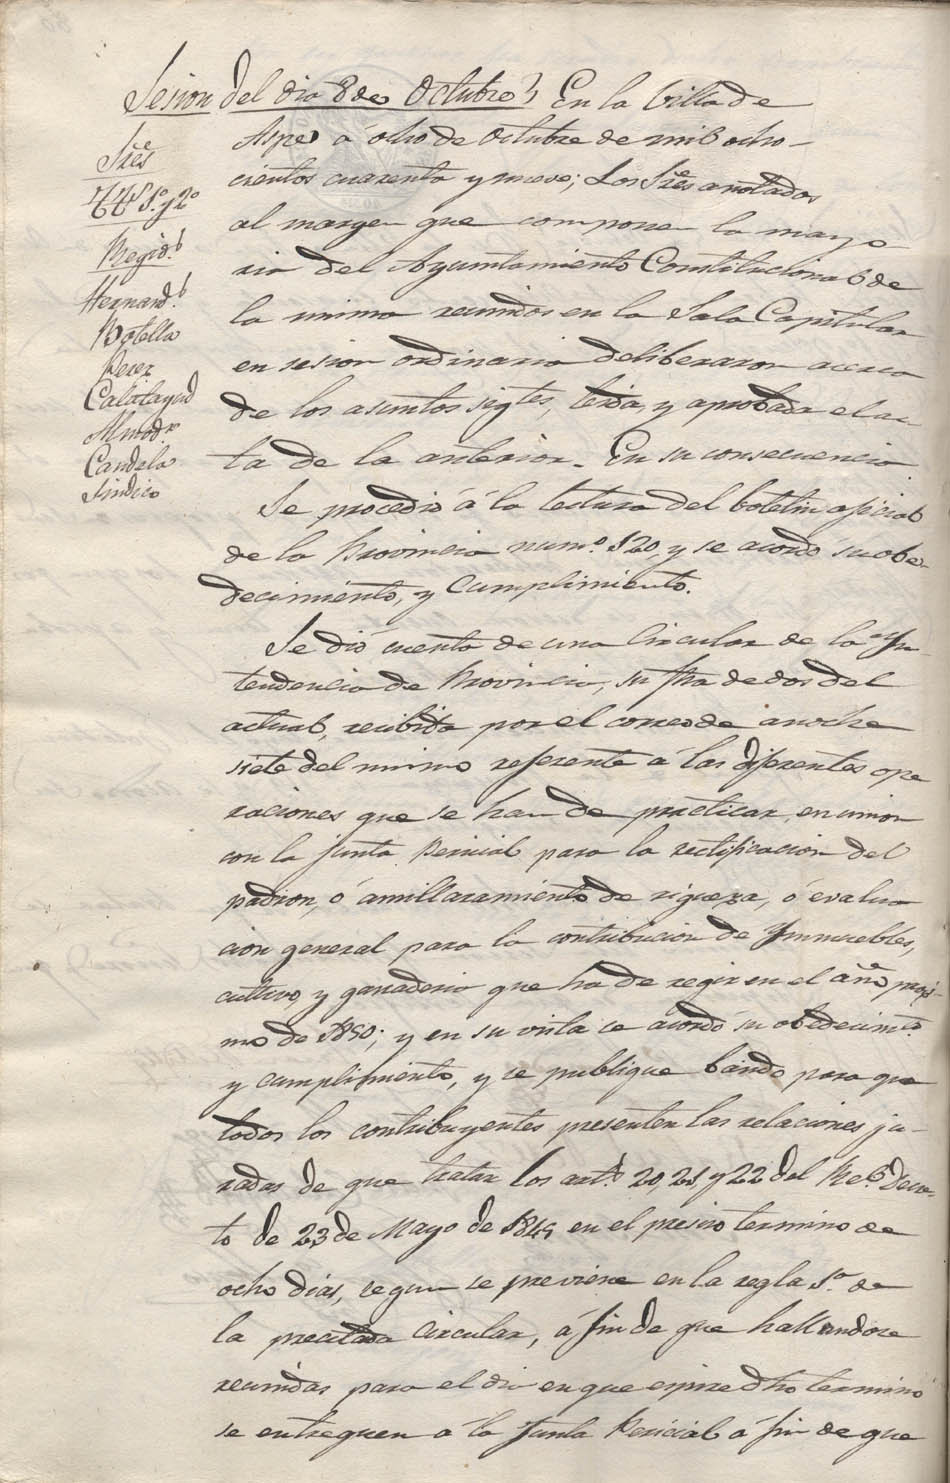 Sesion del dia 8 de Octubre } En la Villa de
Aspe á ocho de Octubre de mil ocho-
cientos cuarenta y nueve; Los Sres anotados
al margen que componen la mayo
ria del Ayuntamiento Constitucional de
la misma reunidos en la Sala Capitular
en sesion ordinaria deliberaron acerca
de los asuntos sigtes, leida, y aprobada el ac-
ta de la anterior. En su consecuencia
Sres
AA 1º y 2º
Regid.s
Hernand.s
Botella
Perez
Calatayud
Almod.r
Candela
Sindico
Se procedió á la lectura del boletin oficial
de la Provincia num.º 120, y se acordó su obe-
decimiento, y cumplimiento.
Se dió cuenta de una Circular de la Yn-
tendencia de Provincia, su fha de dos del
actual, recibida por el correo de anoche
siete del mismo referente á las diferentes ope
raciones que se han de practicar, en union
con la junta Pericial para la rectificacion del
padron, ó amillaramiento de riqueza, ó evalua
cion general para la contribucion de Ynmuebles,
cultivo, y ganaderia que ha de regir en el año procsi-
mo de 1850; y en su vista se acordó su obedecim.to
y cumplimiento, y se publique bando para que
todos los contribuyentes presenten las relaciones ju-
radas de que tratan los art.s 20, 21, y 22 del Rel decre-
to de 23 de Mayo de 1845 en el preciso termino de
ocho dias, segun se previene en la regla 1ª de
la precitada Circular, á fin de que hallandose
reunidas para el dia en que espire dho termino
se entreguen á la Junta Pericial á fin de que